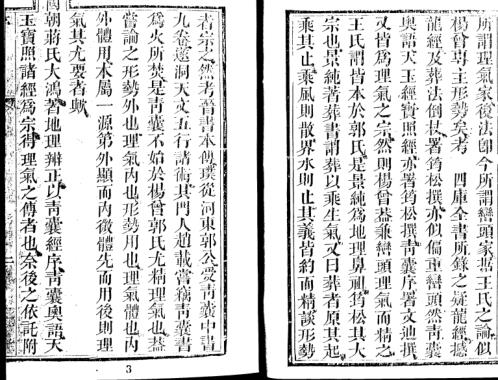 所謂理氣後法即今所謂巒頭家言王氏之論似
楊曾專主形勢矣考 四庫全書所錄之疑龍經撼
龍經及葬法倒杖署筠松撰亦似偏重巒頭然青囊
奧語天玉經寶照經亦署筠松撰青囊序署文辿撰
又皆爲理氣之宗然則楊曾葢兼巒頭理氣而精之
王氏謂皆本於郭氏是景純爲地理鼻祖筠松其大
宗也景純著葬書謂葬以乘生氣又曰葬者原其起
乘其止乘風則散界水則止其義皆約而精談形勢
者宗之然考晉書本傳璞從河東郭公受青囊中書
九卷遂洞天文五行諸術其門人趙載嘗竊青囊書
爲火所焚是青囊不始於楊曾郭氏尤精理氣也葢
嘗論之形勢外也理氣內也形勢用也理氣體也內
外體用本屬一源第外顯而內微體先而用後則理
氣其尤要者歟
國朝蔣氏大鴻著地理辨正以青囊經序青囊奧語天
玉寶照諸經爲宗得理氣之傳者也余後之依託附
3